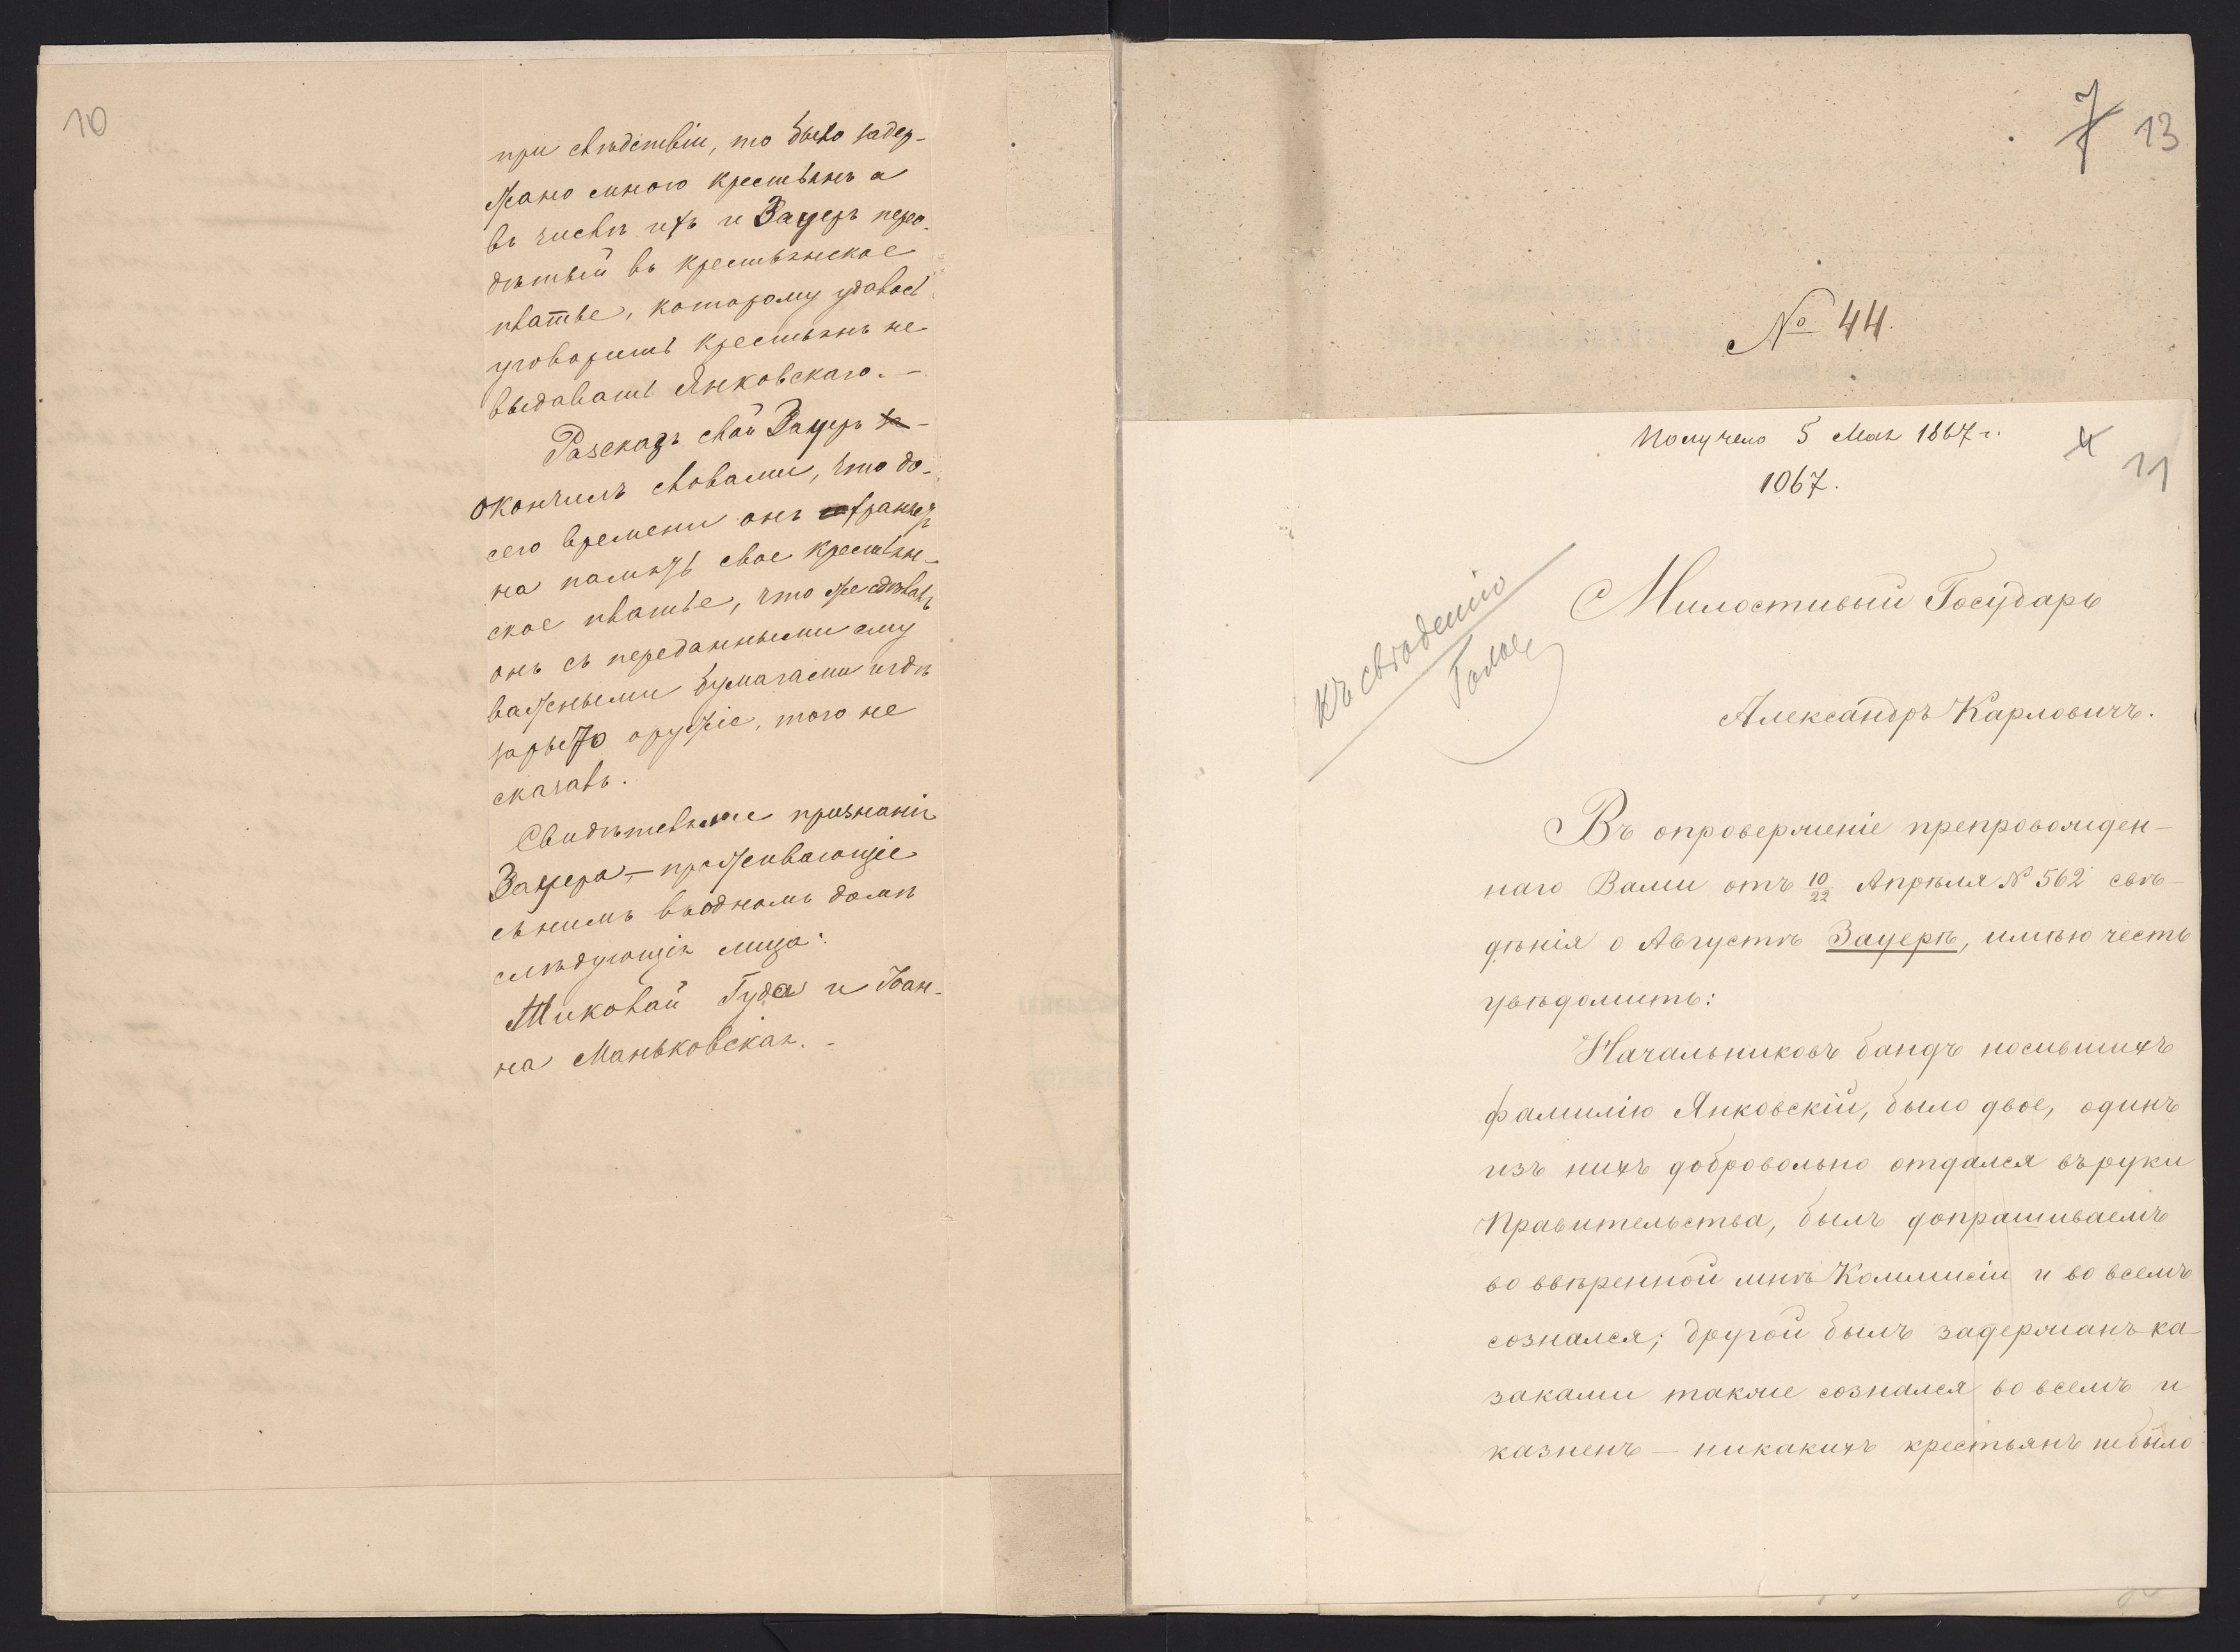 10
при слѣдствіи, то было задер-
жано много крестьянъ а
въ числѣ ихъ и Зауеръ пере-
дѣтый въ крестьянское
платье, которому удалось
уговорить крестьянъ не
выдавать Янковскаго. —
Разсказъ свой Зауеръ
окончилъ словами, что до-
сего времени онъ хранитъ
на память свое крестьян-
ское платье, что же сдѣлалъ
онъ съ переданными ему
важными бумагами и гдѣ
зарыто оружіе, того не
сказалъ.
Свидѣтельные признанія
Зауера, — проживающіе
съ нимъ въ одномъ домѣ
слѣдующія лица:
Миколай Гуда и Іоан-
на Маньковская. -
7 13
№ 44.
Получено 5 Мая 1867 г.
1067.
4 11
Къ свѣденію
Милостивый Государь
Александръ Карловичъ.
Въ опроверженіе препровожден-
наго Вами отъ 10/22 Апрѣля № 562 свѣ-
дѣнія о Августѣ Зауерѣ, имѣю честь
увѣдомить:
Начальниковъ бандъ носившихъ
фамилію Янковскій, было двое, одинъ
изъ нихъ добровольно отдался въ руки
Правительства, былъ допрашиваемъ
во ввѣренной мнѣ Коммисіи и во всемъ
сознался; другой былъ задержанъ ка-
заками также сознался во всемъ и
казненъ — никакихъ крестьянъ небыло